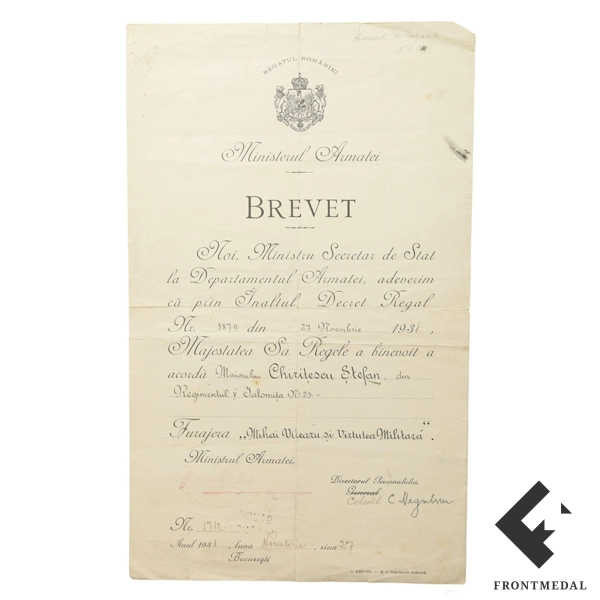 REGATUL ROMÂNIEI
Ministerul Armatei
BREVET
Noi, Ministru Secretar de Stat
la Departamentul Armatei, adeverim
că prin Înaltul Decret Regal
Nr. 3879 din 27 Noembrie 1931,
Majestatea Sa Regele a binevoit a
acordà Maiorului Chirițescu Ștefan, din
Regimentul Ialomița No 23.-
Furajera „Mihai Viteazu și Virtutea Militară".
Ministrul Armatei,
Directorul Personalului,
General
Colonel C Negulescu
Nr. 1712
Anul 1931, luna Noembrie, ziua 27
București
FRONTMEDAL